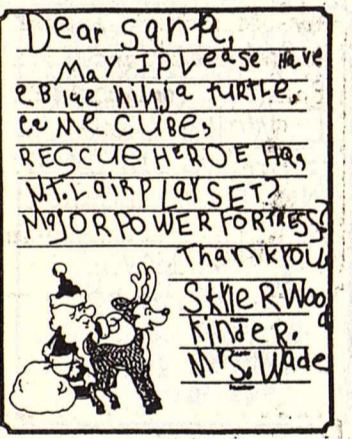 Dear Santa,
May I Please Have
e Blue Ninja turtle,
ee Me CUBE,
RESCUE HEROE HQ,
MT. LAIR PLAYSET?
MAJOR POWER FORTRESS?
Thank You
Skyle R. Wood
Kinder.
Mrs. Wade